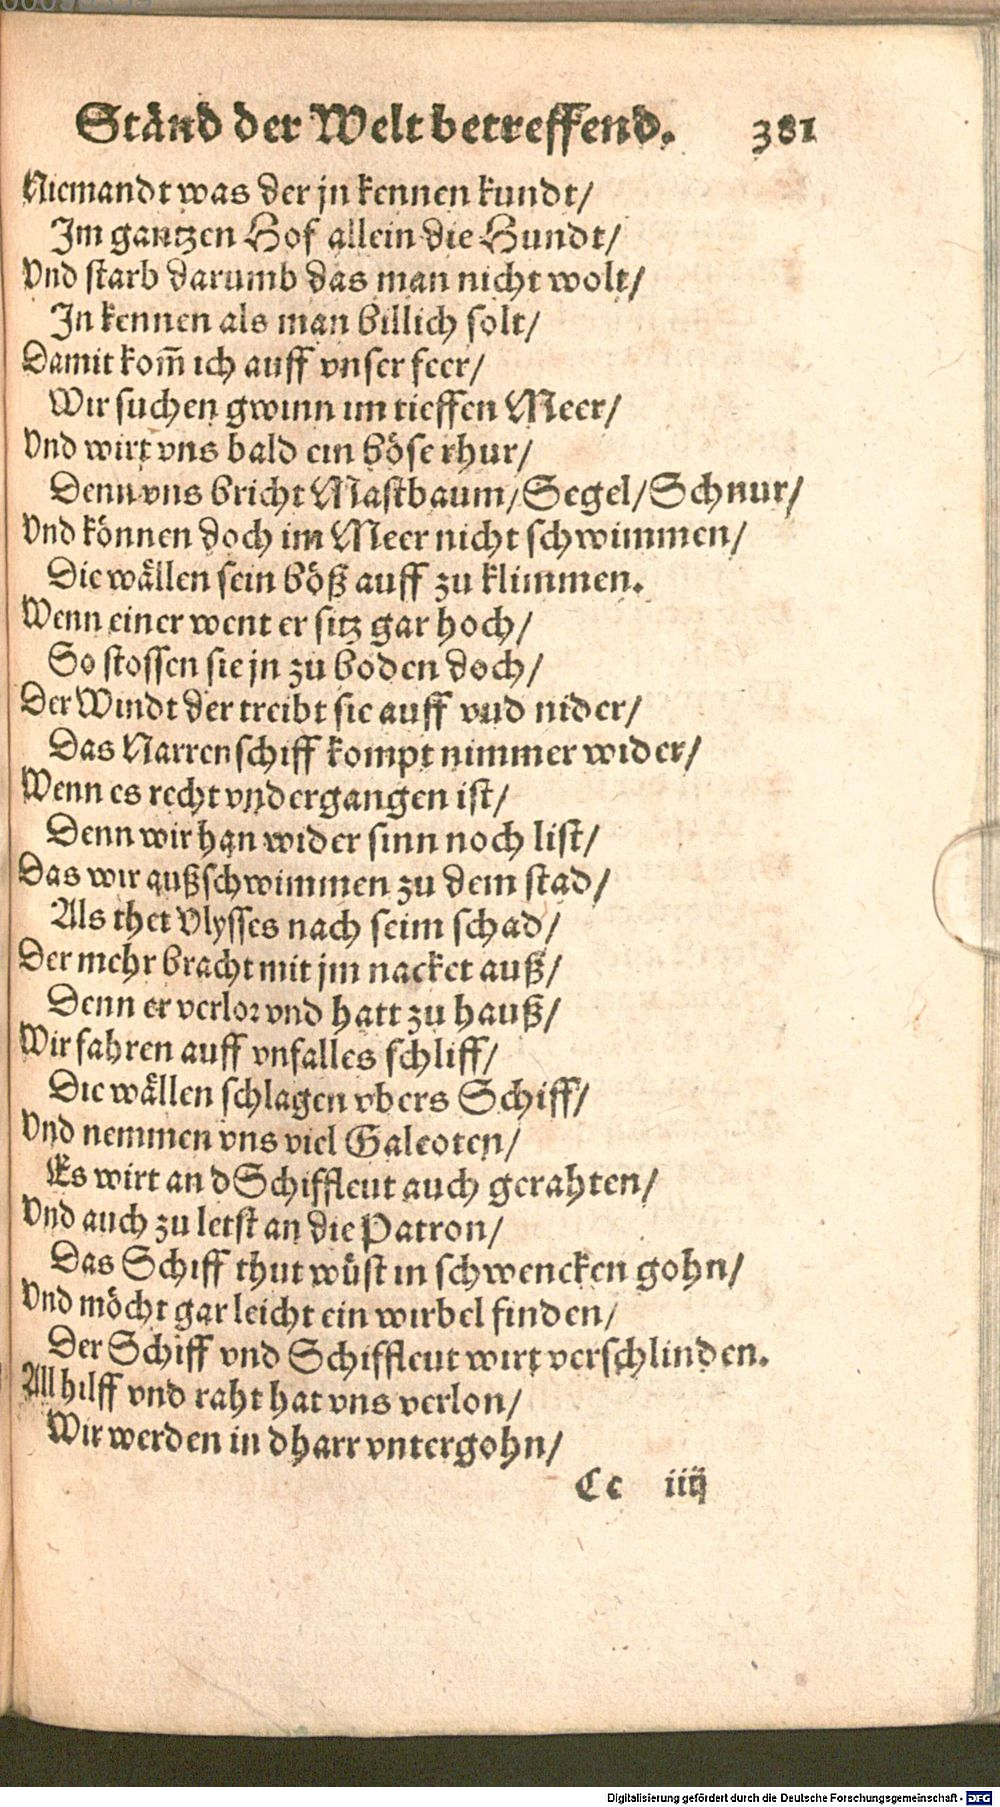 Ständ der Welt betreffend. 381
Niemandt was der jn kennen kundt/
Im gantzen Hof allein die Hundt/
Vnd starb darumb das man nicht wolt/
In kennen als man billich solt/
Damit kom̃ ich auff vnser feer/
Wir suchen gwinn im tieffen Meer/
Vnd wirt vns bald ein böse rhur/
Denn vns bricht Mastbaum/Segel/Schnur/
Vnd können doch im Meer nicht schwimmen/
Die wällen sein böß auff zu klimmen.
Wenn einer went er sitz gar hoch/
So stossen sie jn zu boden doch/
Der Windt der treibt sie auff vnd nider/
Das Narrenschiff kompt nimmer wider/
Wenn es recht vndergangen ist/
Denn wir han wider sinn noch list/
Das wir außschwimmen zu dem stad/
Als thet Vlysses nach seim schad/
Der mehr bracht mit jm nacket auß/
Denn er verlor vnd hatt zu hauß/
Wir fahren auff vnfalles schliff/
Die wällen schlagen vbers Schiff/
Vnd nemmen vns viel Galeoten/
Es wirt an d Schiffleut auch gerahten/
Vnd auch zu letst an die Patron/
Das Schiff thut wüst in schwencken gohn/
Vnd möcht gar leicht ein wirbel finden/
Der Schiff vnd Schiffleut wirt verschlinden.
All hilff vnd raht hat vns verlon/
Wir werden in d harr vntergohn/
Cc iiij
Digitalisierung gefördert durch die Deutsche Forschungsgemeinschaft - DFG